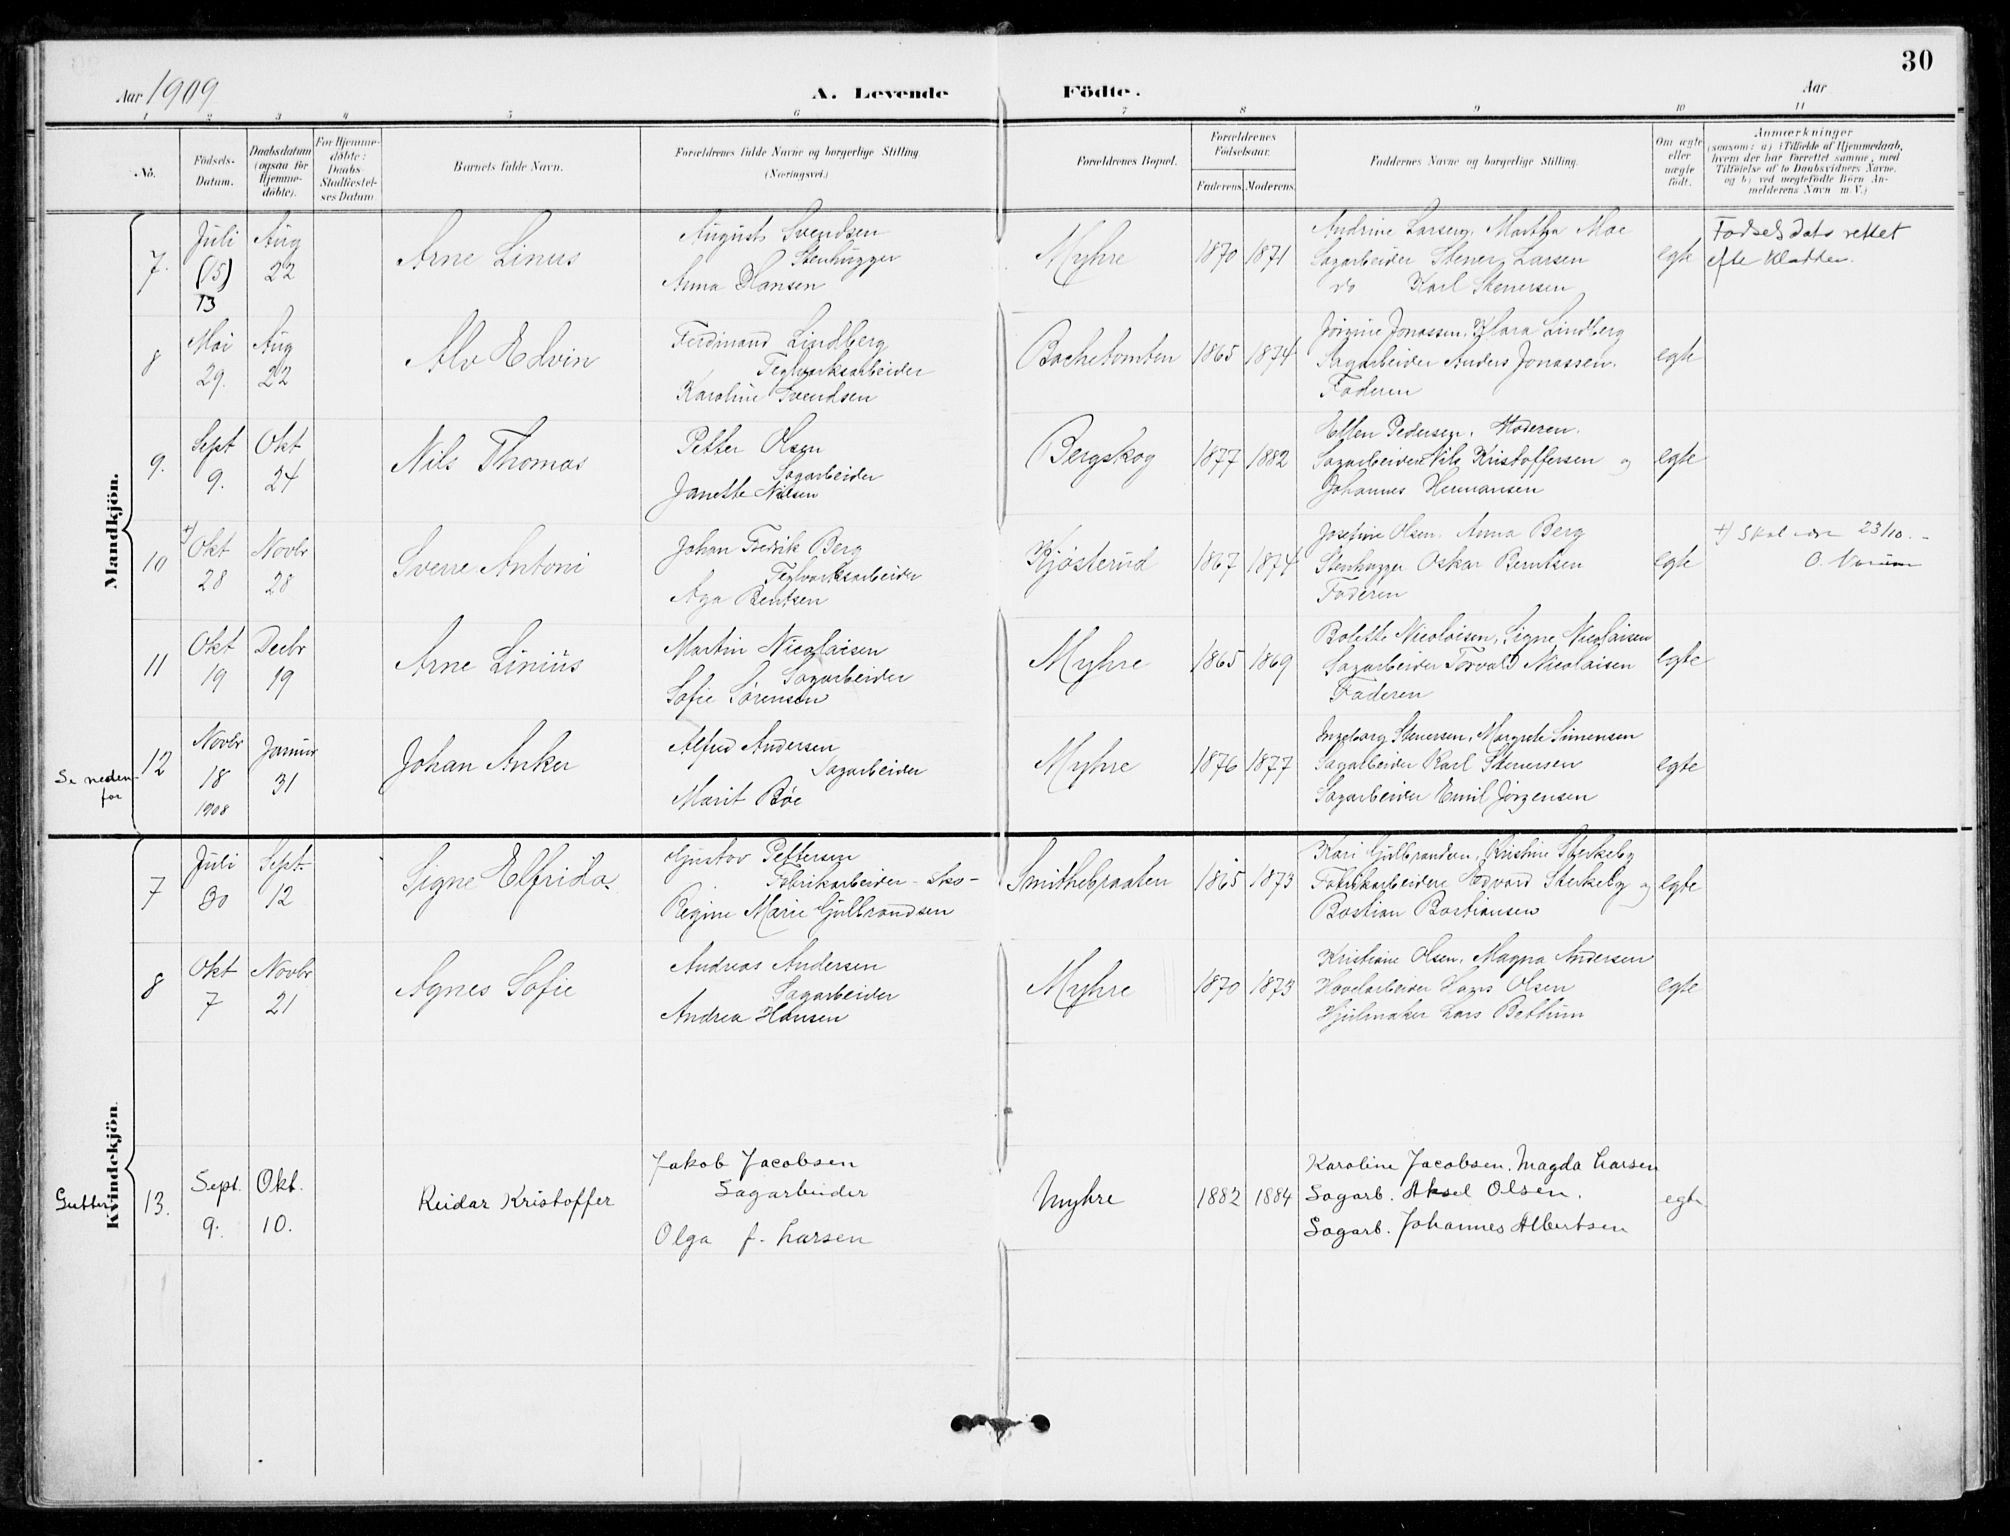 30
Aar 1909
A. Levende Födte.
Aar
1 2 3 4 5 6 7 8 9 10 11
No.
Födsels-Datum.
Daabsdatum (ogsaa for Hjemme-döbte).
For Hjemme-döbte: Daabs-Stadfæstel-ses Datum
Barnets fulde Navn.
Forældrenes fulde Navne og borgerlige Stilling (Næringsvei.)
Forældrenes Bopæl.
Forældrenes Födselsaar.
Faderens Moderens
Faddernes Navne og borgerlige Stilling.
Om ægte eller uægte födt.
Anmærkninger
(saasom: a) i Tilfælde af Hjemmedaab, hvem der har forrettet samme, med Tilföielse af to Daabsvidners Navne. og b) ved uægtefödte Börn An-melderens Navn m. V.)
Mandkjön.
7. Juli (15) 13 Aug 22
Arne Linus
August Svendsen
Stenhugger
Anna Hansen
Myhre 1870 1871
Andrine Larsen, Martha Moe
Sagarbeider Stener Larsen
do Karl Stenersen
egte
Fødselsdato rettet
efte Kladden.
8 Mai 29. Aug 22
Alv Edvin
Ferdinand Lindberg
Teglverksarbeider
Karoline Svendsen
Bachetomten 1865 1874
Jørgine Jonassen, Klara Lindberg
Sagarbeider Anders Jonassen.
Faderen
egte
9. Sept 9. Okt 24
Nils Thomas
Petter Olsen
Sagarbeider
Janette Nilsen
Bergskog 1877 1882
Ellen Pedersen, Moderen.
Sagarbeider Nils Kristoffersen og
Johannes Hermansen
egte
10 +) Okt 28 Novbr 28
Sverre Antoni
Johan Fredrik Berg
Teglverksarbeider
Aga Bentsen
Kjøsterud 1867 1874
Josefine Olsen, Anna Berg
Stenhugger Oskar Berntsen
Faderen
egte
+) Skal være 23/10.
11 Okt 19 Decbr 19
Arne Linius
Martin Nicolaisen
Sagarbeider
Sofie Sørensen
Myhre 1865 1869
Bolette Nicolaisen, Signe Nicolaisen
Sagarbeider Torvald Nicolaisen
Faderen
egte
Se neden-for
12 Novbr 18 1908 Januar 31
Johan Anker
Alfred Andersen
Sagarbeider
Marit Bøe
Myhre 1876 1877
Ingeborg Stenersen, Margrete Simensen
Sagarbeider Karl Stenersen
Sagarbeider Emil Jørgensen
egte
Kvindekjön.
7 Juli 30 Sept. 12
Signe Elfrida.
Gustav Pettersen
Fabrikarbeider - Sko -
Regine Marie Gulbrandsen
Smithebraaten 1865 1873
Kari Gulbrandsen, Kristine Sterkeby
Fabrikarbeidere Edvard Sterkeby og
Bastian Bastiansen
egte
8 Okt 7 Novbr 21
Agnes Sofie
Andreas Andersen
Sagarbeider
Andrea Hansen
Myhre 1870 1873
Kristiane Olsen, Magna Andersen
Høvelarbeider Hans Olsen
Hjulmaker Lars Bettum
egte
Gutter
13. Sept. 9. Okt. 10.
Reidar Kristoffer
Jakob Jacobsen
Sagarbeider
Olga f. Larsen
Myhre 1882 1884
Karoline Jacobsen, Magda Larsen
Sagarb. Aksel Olsen.
Sagarb. Johannes Albertsen
egte